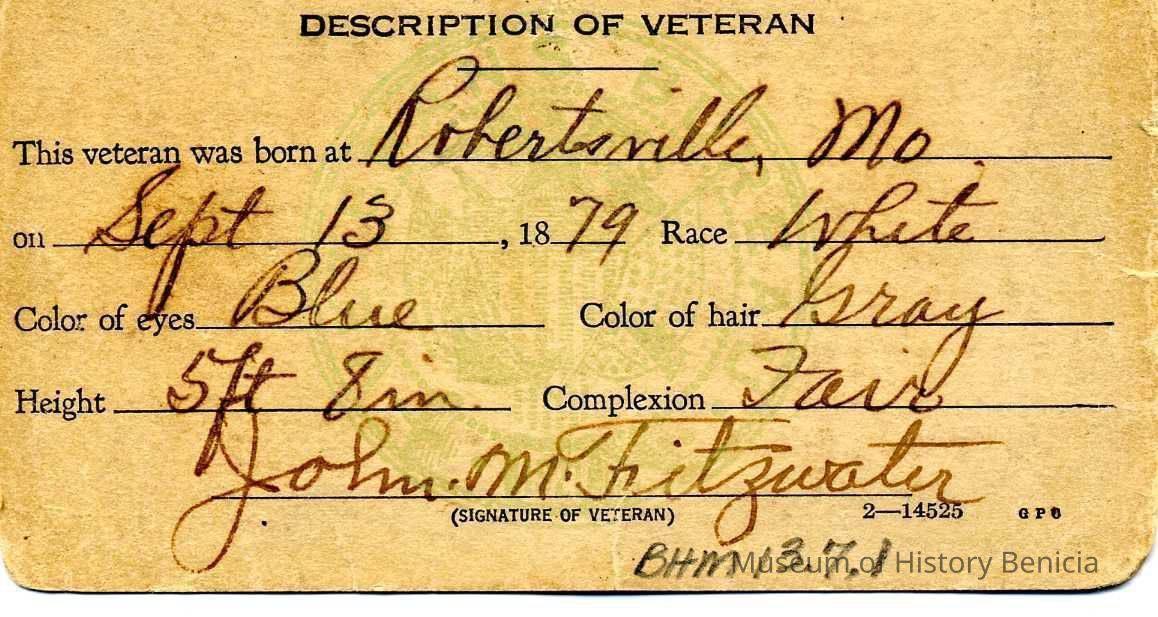 DESCRIPTION OF VETERAN
This veteran was born at Robertsville, Mo.
on Sept 13, 1879 Race White
Color of eyes Blue Color of hair Gray
Height 5ft 8in. Complexion Fair
John. M. Fitzwater
(SIGNATURE OF VETERAN) 2—14525 GPO
BHM 13.7.1
Museum of History Benicia